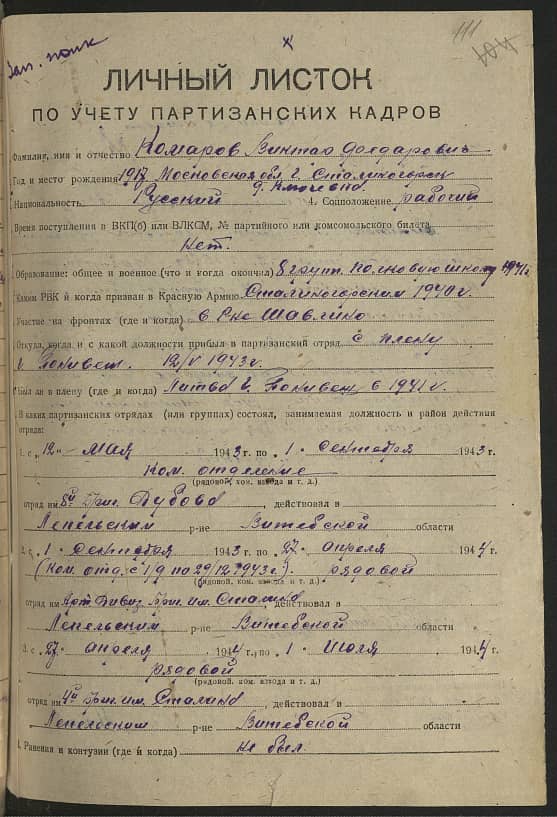 111
Зап. полк
ЛИЧНЫЙ ЛИСТОК
ПО УЧЕТУ ПАРТИЗАНСКИХ КАДРОВ
Фамилия, имя и отчество Комаров Виктао
Год и место рождения 1917 Московская обл. г. Сталиногорск
Национальность Русский д. 4. Соцположение рабочий
Время поступления в ВКП(б) или ВЛКСМ, № партийного или комсомольского билета
Нет.
Образование: общее и военное (что и когда окончил) 8 групп. Полковую школу 1941г
Каким РВК и когда призван в Красную Армию Сталиногорским 1940г.
Участие на фронтах (где и когда) в р-не Шавлино
Откуда, когда и с какой должности прибыл в партизанский отряд с плену
г. 12/V 1943г.
Был ли в плену (где и когда) Литва г. в 1941г.
В каких партизанских отрядах (или группах) состоял, занимаемая должность и район действия
отряда:
1. с "12" мая 1943 г. по 1 сентября 1943 г.
Ком. отделение
(рядовой, ком. взвода и т. д.)
отряд им. бриг. Дубова действовал в
Лепельским р-не Витебской области
2. с 1 сентября 1943 г. по 27 апреля 1944 г.
(Ком. отд. с 1/9 по 29/12 1943г.). рядовой
(рядовой, ком. взвода и т. д.)
отряд им. Арт. Дивиз. Бриг. им. Сталина, действовал в
Лепельским р-не Витебской области
3. с 27 апреля 1944 г. по 1 июля 1944 г.
рядовой
(рядовой, ком. взвода и т. д.)
отряд им. бриг. им. Сталина действовал в
Лепельским р-не Витебской области
4. Ранения и контузии (где и когда) не был.